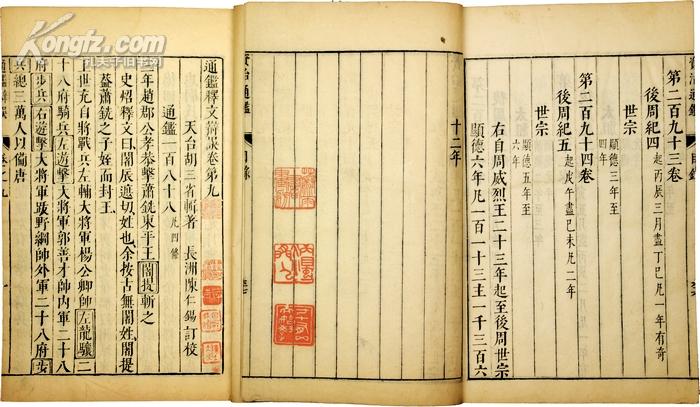 Kongfz.com
孔夫子旧书网
資治通鑑
目錄
第二百九十三卷
後周紀四起丙辰三月盡丁巳凡一年有奇
世宗
顯德三年至
四年
第二百九十四卷
後周紀五起戊午盡己未凡二年
世宗
顯德五年至
六年
右自周威烈王二十三年起至後周世宗
顯德六年凡一百一十三主一千三百六
十二年
資治通鑑
目錄
通鑑釋文辯誤卷第九
天台胡三省斬著 長洲陳仁錫訂校
通鑑一百八十八凡四條
三年趙郡公孝恭擊蕭銑東平王闍提斬之
史炤釋文曰闍辰遮切姓也余按古無闍姓闍提
葢蕭銑之子姪而封王
世充自將戰兵左輔大將軍楊公卿帥左龍驤二
十八府騎兵左遊擊大將軍郭善才帥內軍二十八
府步兵右遊擊大將軍跋野綱帥外軍二十八府步
兵總三萬人以備唐
通鑑辯誤
卷之九
一